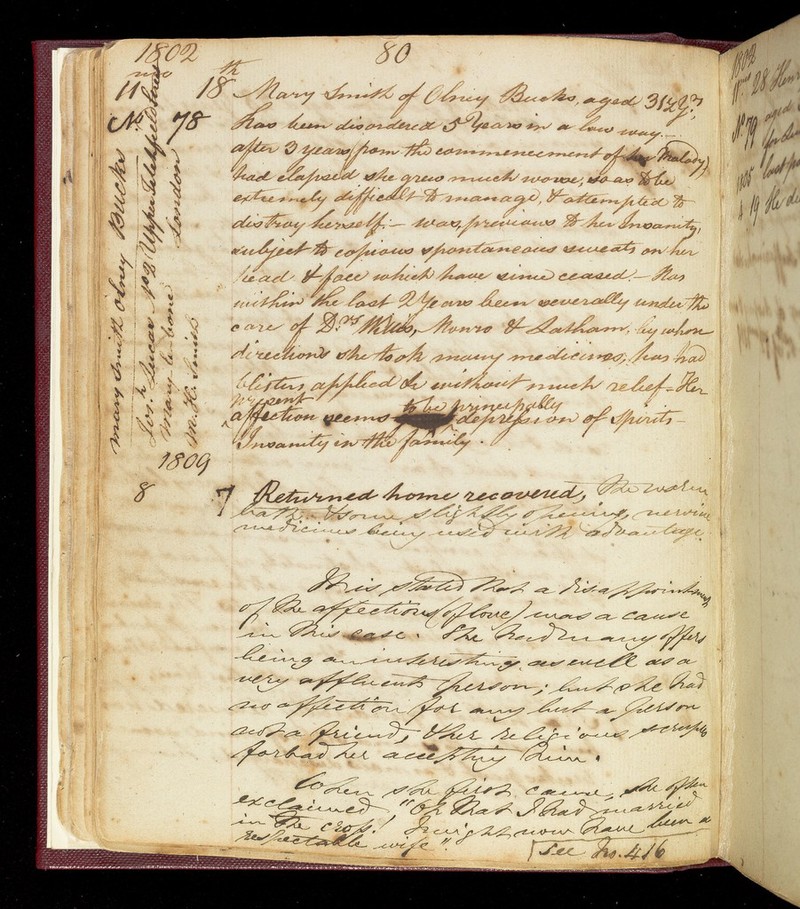 1802
80
mo
11
18th
No 78
Mary Smith of Olney Bucks, aged 31½ Yrs,
has been disordered 5 Years in a low way.—
after 3 years from the commencement of her Malady
had elapsed she grew much worse, so as to be
extremely difficult to manage, & attempted to
distroy herself.— was, previous to her Insanity,
subject to copious spontaneous sweats on her
head & face which have since ceased.— Has
within the last 2 Years been severally under the
care of Drs Willis, Monro & Latham, by whose
directions she took many medicines, has had
blisters applied &c without much relief = Her
present to be principally
affection seems depression of Spirits—
Insanity in the family.
Mary Smith Olney Bucks
Upper Litchfield Street
Mary le bone London
M. H. Smith
1809
8
7
Returned home recovered, The warm
bath & some slightly opening, nervine
medicines being used with advantage.
It is stated that a disappointment
of the affections (of love) was a cause
in this case. She had many offers
being an interesting as well as a
very affluent person; but she had
no affection for any but a person
not a friend, & her religious scruples
forbad her accepting him.
When she first came, she often
exclaimed, "Oh that I had married
in the cross! I might now have been a
respectable wife."
See No. 416
1802
28
No 79
aged